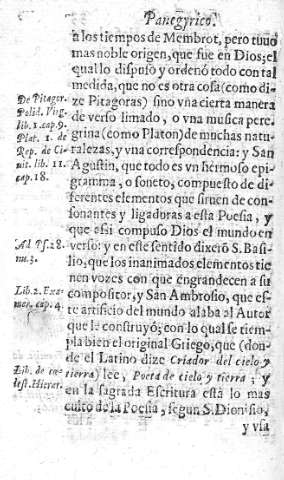 Panegyrico.
a los tiempos de Membrot, pero tuuo
mas noble origen, que fue en Dios; el
qual lo dispuso y ordenó todo con tal
medida, que no es otra cosa (como di-
ze Pitagoras) sino vña cierta manera
de verso limado, o vna musica pere-
grina (como Platon) de muchas natu-
ralezas, y vna correspondencia: y San
Agustin, que todo es vn hermoso epi-
gramma, o soneto, compuesto de di-
ferentes elementos que siruen de con-
sonantes y ligadoras a esta Poesia, y
que assi compuso Dios el mundo en
verso: y en este sentido dixerõ S. Basi-
lio, que los inanimados elementos tie-
nen vozes con que engrandecen a su
compositor, y San Ambrosio, que es-
te artificio del mundo alaba al Autor
que le construyó; con lo qual se tiem-
pla bien el original Griego, que (don-
de el Latino dize Criador del cielo y
tierra) lee, Poeta de cielo y tierra; y
en la sagrada Escritura està lo mas
culto de la Poesia, segun S. Dionisio,
y vsa
De Pitagor.
Polid. Virg.
lib. 1. cap. 9.
Plat. 1. de
Rep. de Ci-
uit. lib. 11.
cap. 18.
Ad Ps. 28.
nu. 3.
Lib. 2. Exa-
mer. cap. 4.
Lib. de cœ-
lest. Hierar.